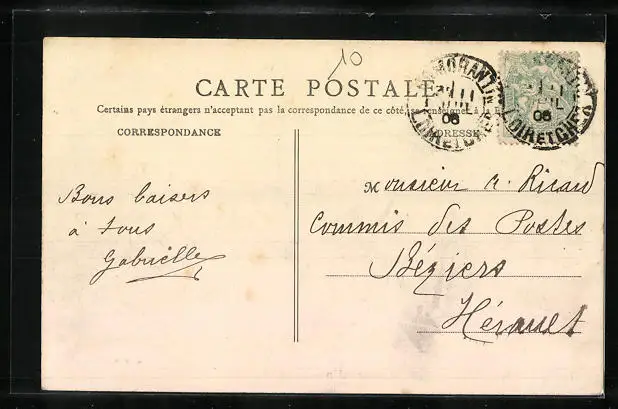 10
CARTE POSTALE
Certains pays étrangers n'acceptent pas la correspondance de ce côté, se renseigner à la
CORRESPONDANCE
ADRESSE
ROMORANTIN
11
06
LOIR ET CHER
Bons baisers
à tous
Gabrielle
Monsieur A. Ricard
Commis des Postes
Béziers
Hérault